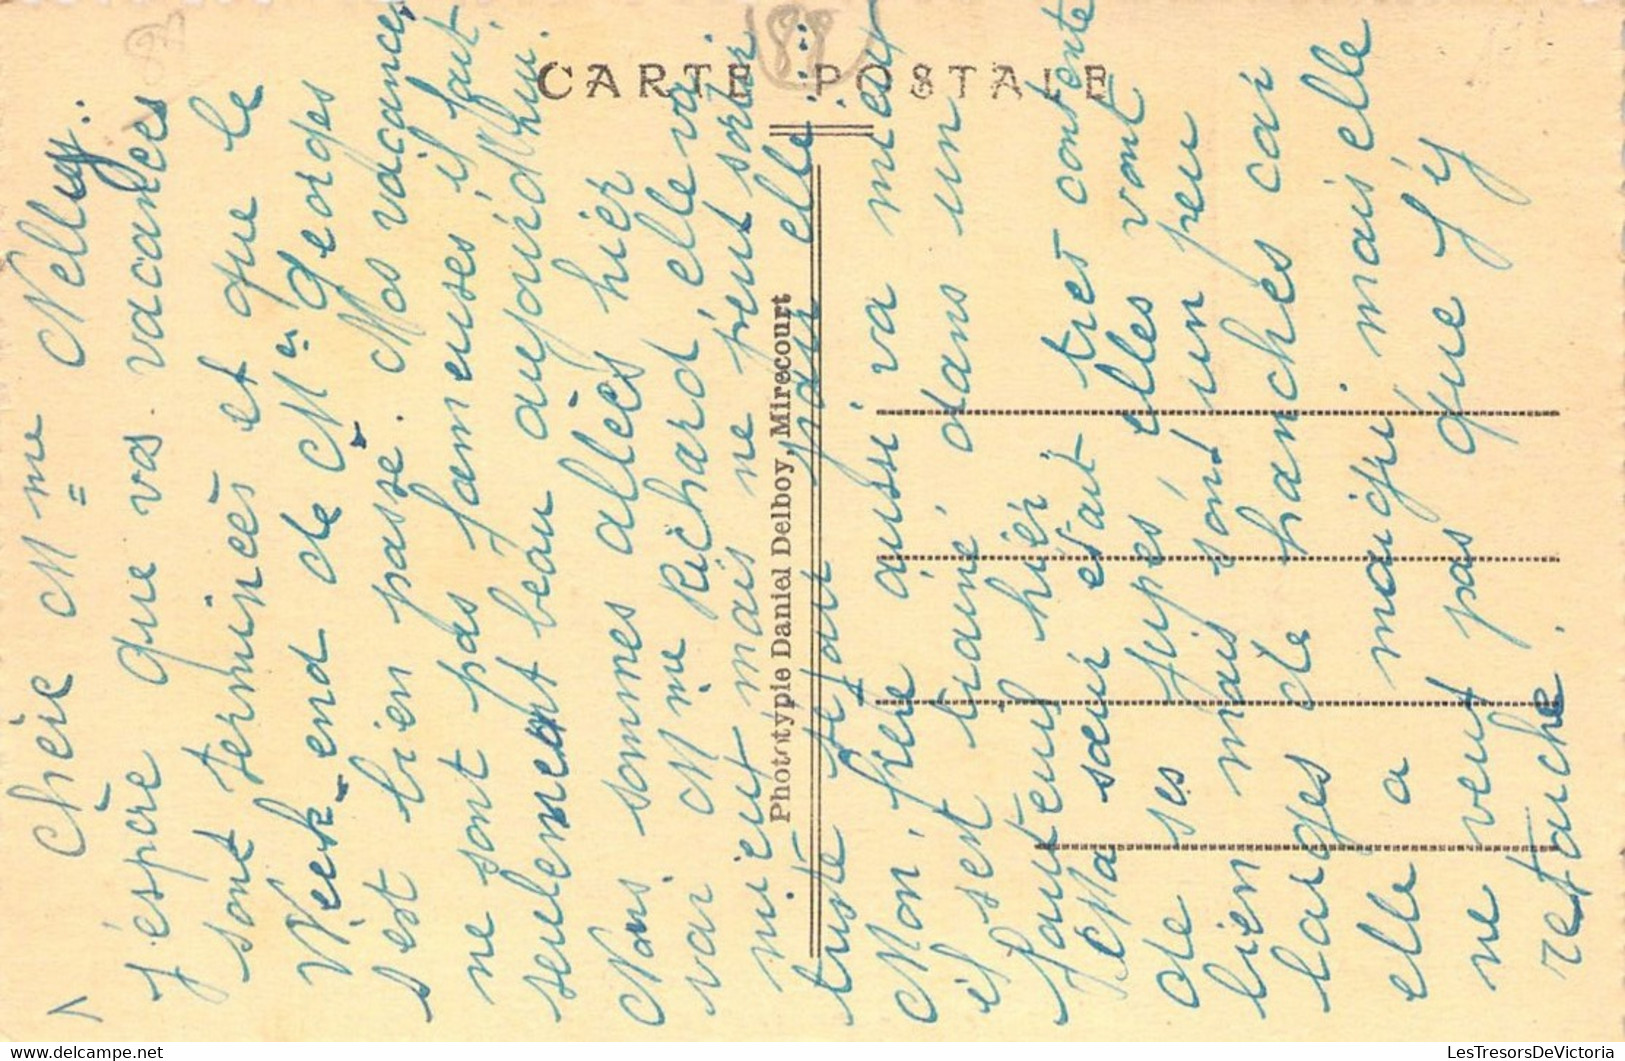 CARTE POSTALE
88
Phototypie Daniel Delboy, Mirecourt
1
Chère Mme Nelly.
J'éspère que vos vacances
sont terminées et que le
Week-end de Mr Georges
s'est bien passé. Mos vacances
ne sont pas fameuses il fait
seulement beau aujourd'hui.
Nous sommes allées hier
voir Mme Richard, elle va
mieux mais ne peut sortir
tuste tétou pour elle.
Mon frère aussi va mieux
il s'est traîné dans un
fauteuil hier
Ma sœur était très contente
de ses jupes elles vont
bien mais sont un peu
larges de hanches car
elle a maigri, mais elle
ne veut pas que j'y
retouche.
LesTresorsDeVictoria